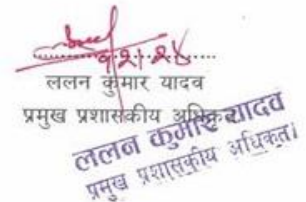 ९।२।२४
ललन कुमार यादव
प्रमुख प्रशासकीय अधिकृत
ललन कुमार यादव
प्रमुख प्रशासकीय अधिकृत।